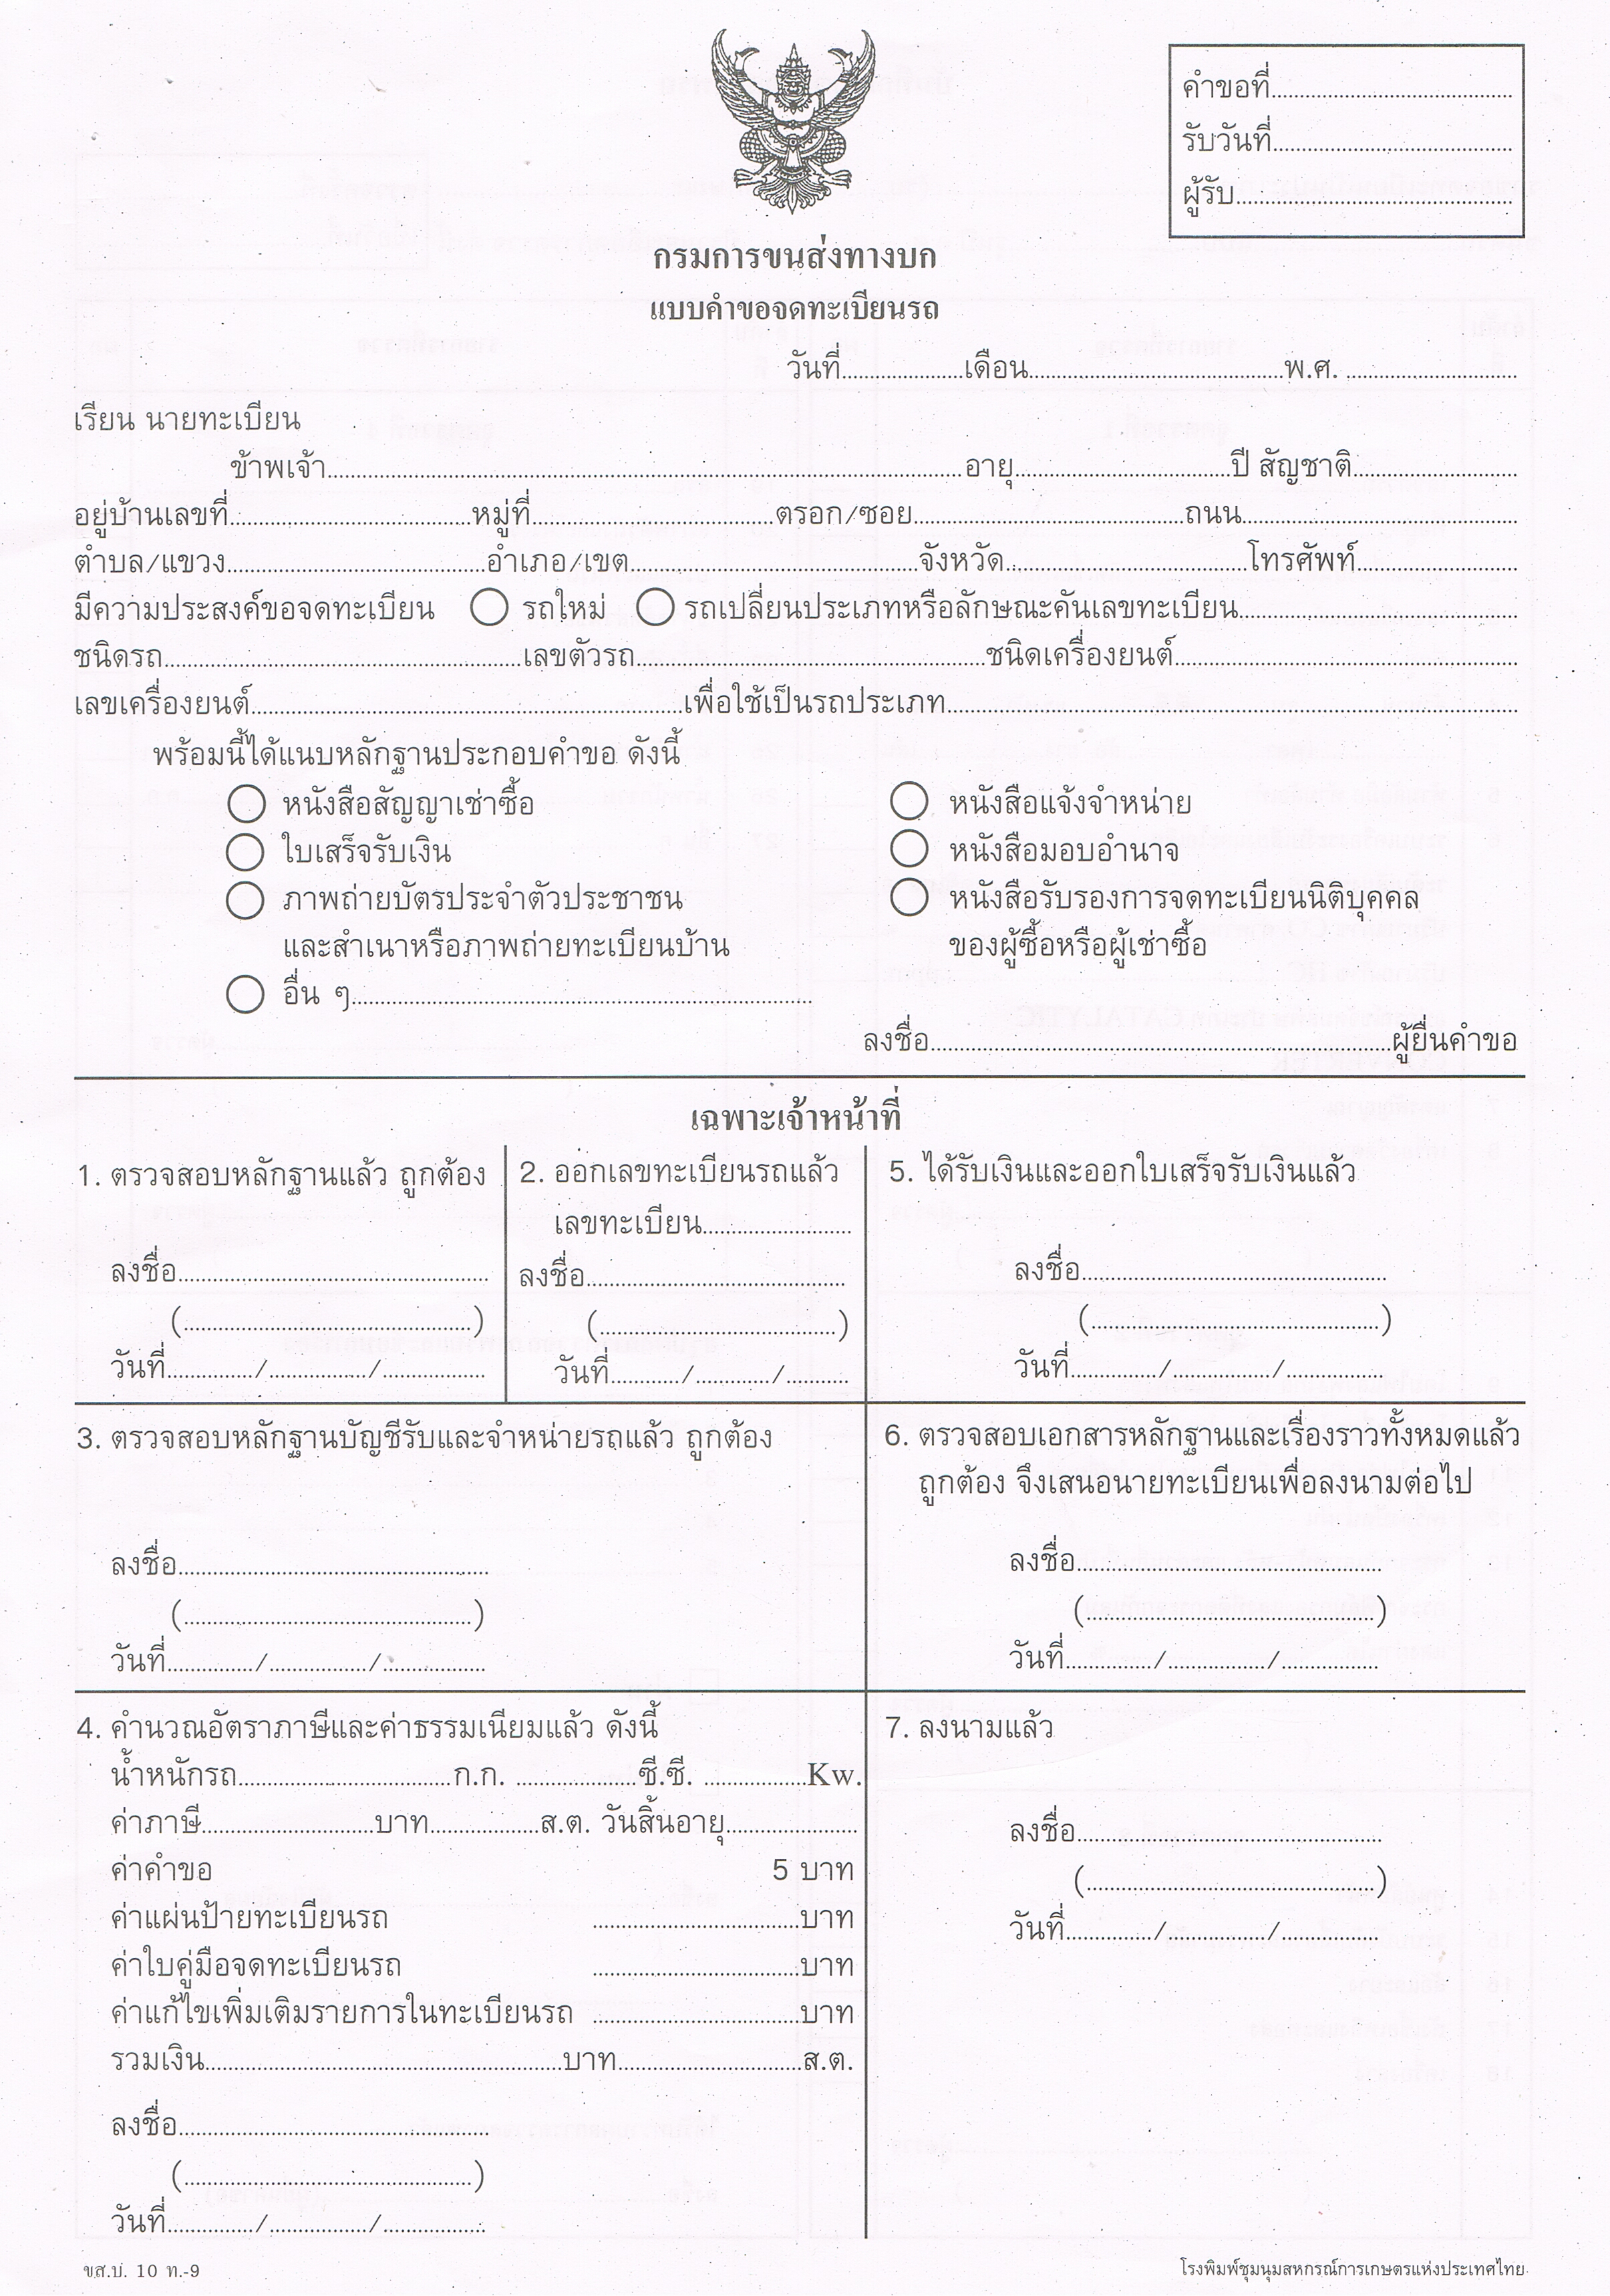 คำขอที่..............................
รับวันที่..............................
ผู้รับ..............................
กรมการขนส่งทางบก
แบบคำขอจดทะเบียนรถ
วันที่....................เดือน..............................พ.ศ. ....................
เรียน นายทะเบียน
ข้าพเจ้า..............................อายุ....................ปี สัญชาติ....................
อยู่บ้านเลขที่....................หมู่ที่....................ตรอก/ซอย....................ถนน....................
ตำบล/แขวง....................อำเภอ/เขต....................จังหวัด....................โทรศัพท์....................
มีความประสงค์ขอจดทะเบียน ◯ รถใหม่ ◯ รถเปลี่ยนประเภทหรือลักษณะคันเลขทะเบียน....................
ชนิดรถ....................เลขตัวรถ....................ชนิดเครื่องยนต์....................
เลขเครื่องยนต์....................เพื่อใช้เป็นรถประเภท....................
พร้อมนี้ได้แนบหลักฐานประกอบคำขอ ดังนี้
◯ หนังสือสัญญาเช่าซื้อ ◯ หนังสือแจ้งจำหน่าย
◯ ใบเสร็จรับเงิน ◯ หนังสือมอบอำนาจ
◯ ภาพถ่ายบัตรประจำตัวประชาชน ◯ หนังสือรับรองการจดทะเบียนนิติบุคคล
และสำเนาหรือภาพถ่ายทะเบียนบ้าน ของผู้ซื้อหรือผู้เช่าซื้อ
◯ อื่น ๆ..............................
ลงชื่อ..............................ผู้ยื่นคำขอ
เฉพาะเจ้าหน้าที่
1. ตรวจสอบหลักฐานแล้ว ถูกต้อง
ลงชื่อ..............................
(..............................)
วันที่............../................/................
2. ออกเลขทะเบียนรถแล้ว
เลขทะเบียน....................
ลงชื่อ..............................
(..............................)
วันที่............/............../...........
5. ได้รับเงินและออกใบเสร็จรับเงินแล้ว
ลงชื่อ..............................
(..............................)
วันที่............../................/................
3. ตรวจสอบหลักฐานบัญชีรับและจำหน่ายรถแล้ว ถูกต้อง
ลงชื่อ..............................
(..............................)
วันที่............../................/................
6. ตรวจสอบเอกสารหลักฐานและเรื่องราวทั้งหมดแล้ว
ถูกต้อง จึงเสนอนายทะเบียนเพื่อลงนามต่อไป
ลงชื่อ..............................
(..............................)
วันที่............../................/................
4. คำนวณอัตราภาษีและค่าธรรมเนียมแล้ว ดังนี้
น้ำหนักรถ..............................ก.ก. ....................ซี.ซี. ................Kw.
ค่าภาษี....................บาท..................ส.ต. วันสิ้นอายุ....................
ค่าคำขอ 5 บาท
ค่าแผ่นป้ายทะเบียนรถ ..............................บาท
ค่าใบคู่มือจดทะเบียนรถ ..............................บาท
ค่าแก้ไขเพิ่มเติมรายการในทะเบียนรถ ..............................บาท
รวมเงิน..............................บาท..............................ส.ต.
ลงชื่อ..............................
(..............................)
วันที่............../................/................
7. ลงนามแล้ว
ลงชื่อ..............................
(..............................)
วันที่............../................/................
ขส.บ. 10 ท.-9
โรงพิมพ์ชุมนุมสหกรณ์การเกษตรแห่งประเทศไทย